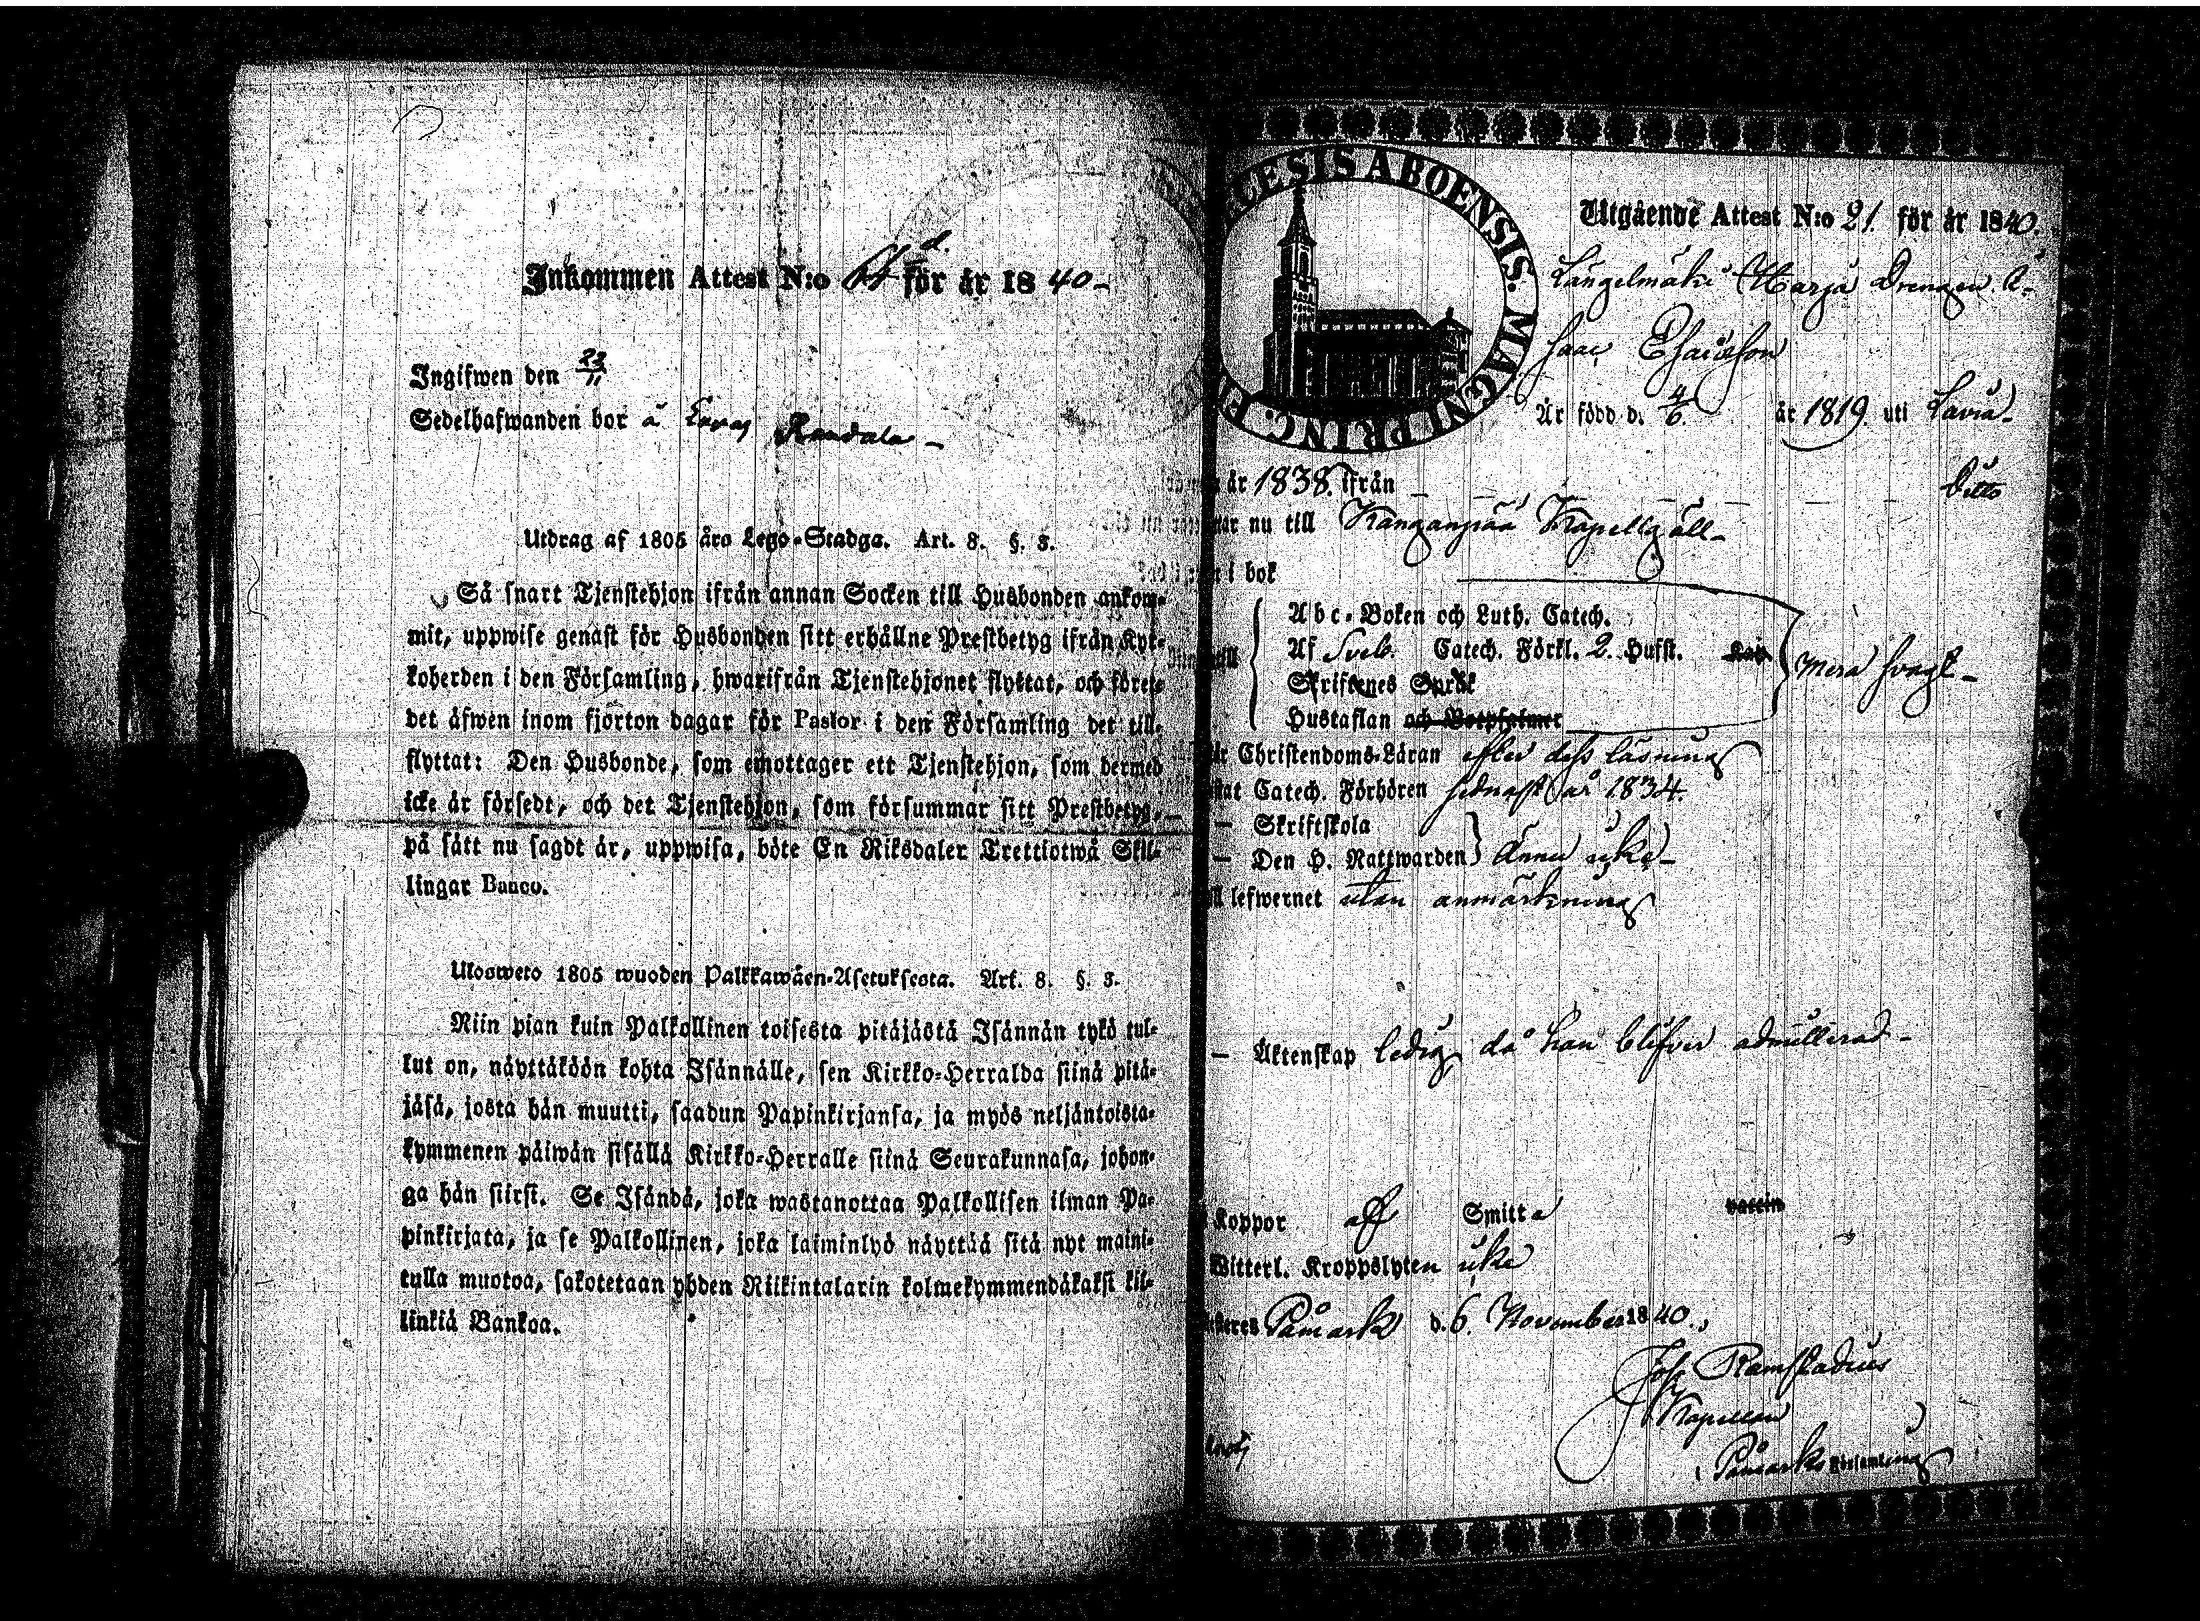 Inkommen Attest N:o för år 1840-
Ingifwen den 23/11
Sedelhafwanden bor å
Utdrag af 1805 års Lego-Stadga. Art. 8. §. 3.
Så snart Tjenstehjon ifrån annan Socken till Husbonden ankom-
mit, uppwise genast för Husbonden sitt erhållne Prestbetyg ifrån Kyr-
koherden i den Församling, hwarifrån Tjenstehjonet flyttat, och förete
det äfwen inom fjorton dagar för Pastor i den Församling det till-
flyttat: Den Husbonde, som emottager ett Tjenstehjon, som dermed
icke är försedt, och det Tjenstehjon, som försummar sitt Prestbetyg,
på sätt nu sagdt är, uppwisa, böte En Riksdaler Trettiotwå Skil-
lingar Banco.
Ulosweto 1805 wuoden Palkkawäen-Asetuksesta. Art. 8. §. 3.
Niin pian kuin Palkollinen toisesta pitäjästä Isännän tykö tul-
lut on, näyttäköön kohta Isännälle, sen Kirkko-Herralda siinä pitä-
jäsä, josta hän muutti, saadun Papinkirjansa, ja myös neljäntoista-
kymmenen päiwän sisällä Kirkko-Herralle siinä Seurakunnasa, johon-
ga hän siirsi. Se Isändä, joka wastanottaa Palkollisen ilman Pa-
pinkirjata, ja se Palkollinen, joka laiminlyö näyttää sitä nyt maini-
tulla muotoa, sakotetaan yhden Riikintalarin kolmekymmendäkaksi kil-
linkiä Bankoa.
CESIS ABOENSIS. MAGNI PRINC. F
Utgående Attest N:o 21. för år 1840.
Längelmäki Drengen
Isaac Esaiasson
Är född d. 4/6. år 1819. uti Lavia-
år 1838. ifrån Ditto
nu till Kangangpää Kapellgäll-
i bok
Abc-Boken och Luth. Catech.
Af Sveb. Catech. Förkl. 2. Hufst.
Skriftenes Språk
Hustaflan och Botpsalmer
mera svagt-
Christendoms-Läran efter dess läsning
Catech. Förhören sednast år 1834.
- Skriftskola
- Den H. Nattwarden } ännu icke-
lefwernet utan anmärkning
- Äktenskap ledig, då han blifver admitterad-
Koppor af Smitta vaccin
Witterl. Kroppslyten icke
Påmark d. 6. November 1840.,
Joh Ramstadius
Kapellan
i Påmarks Församling